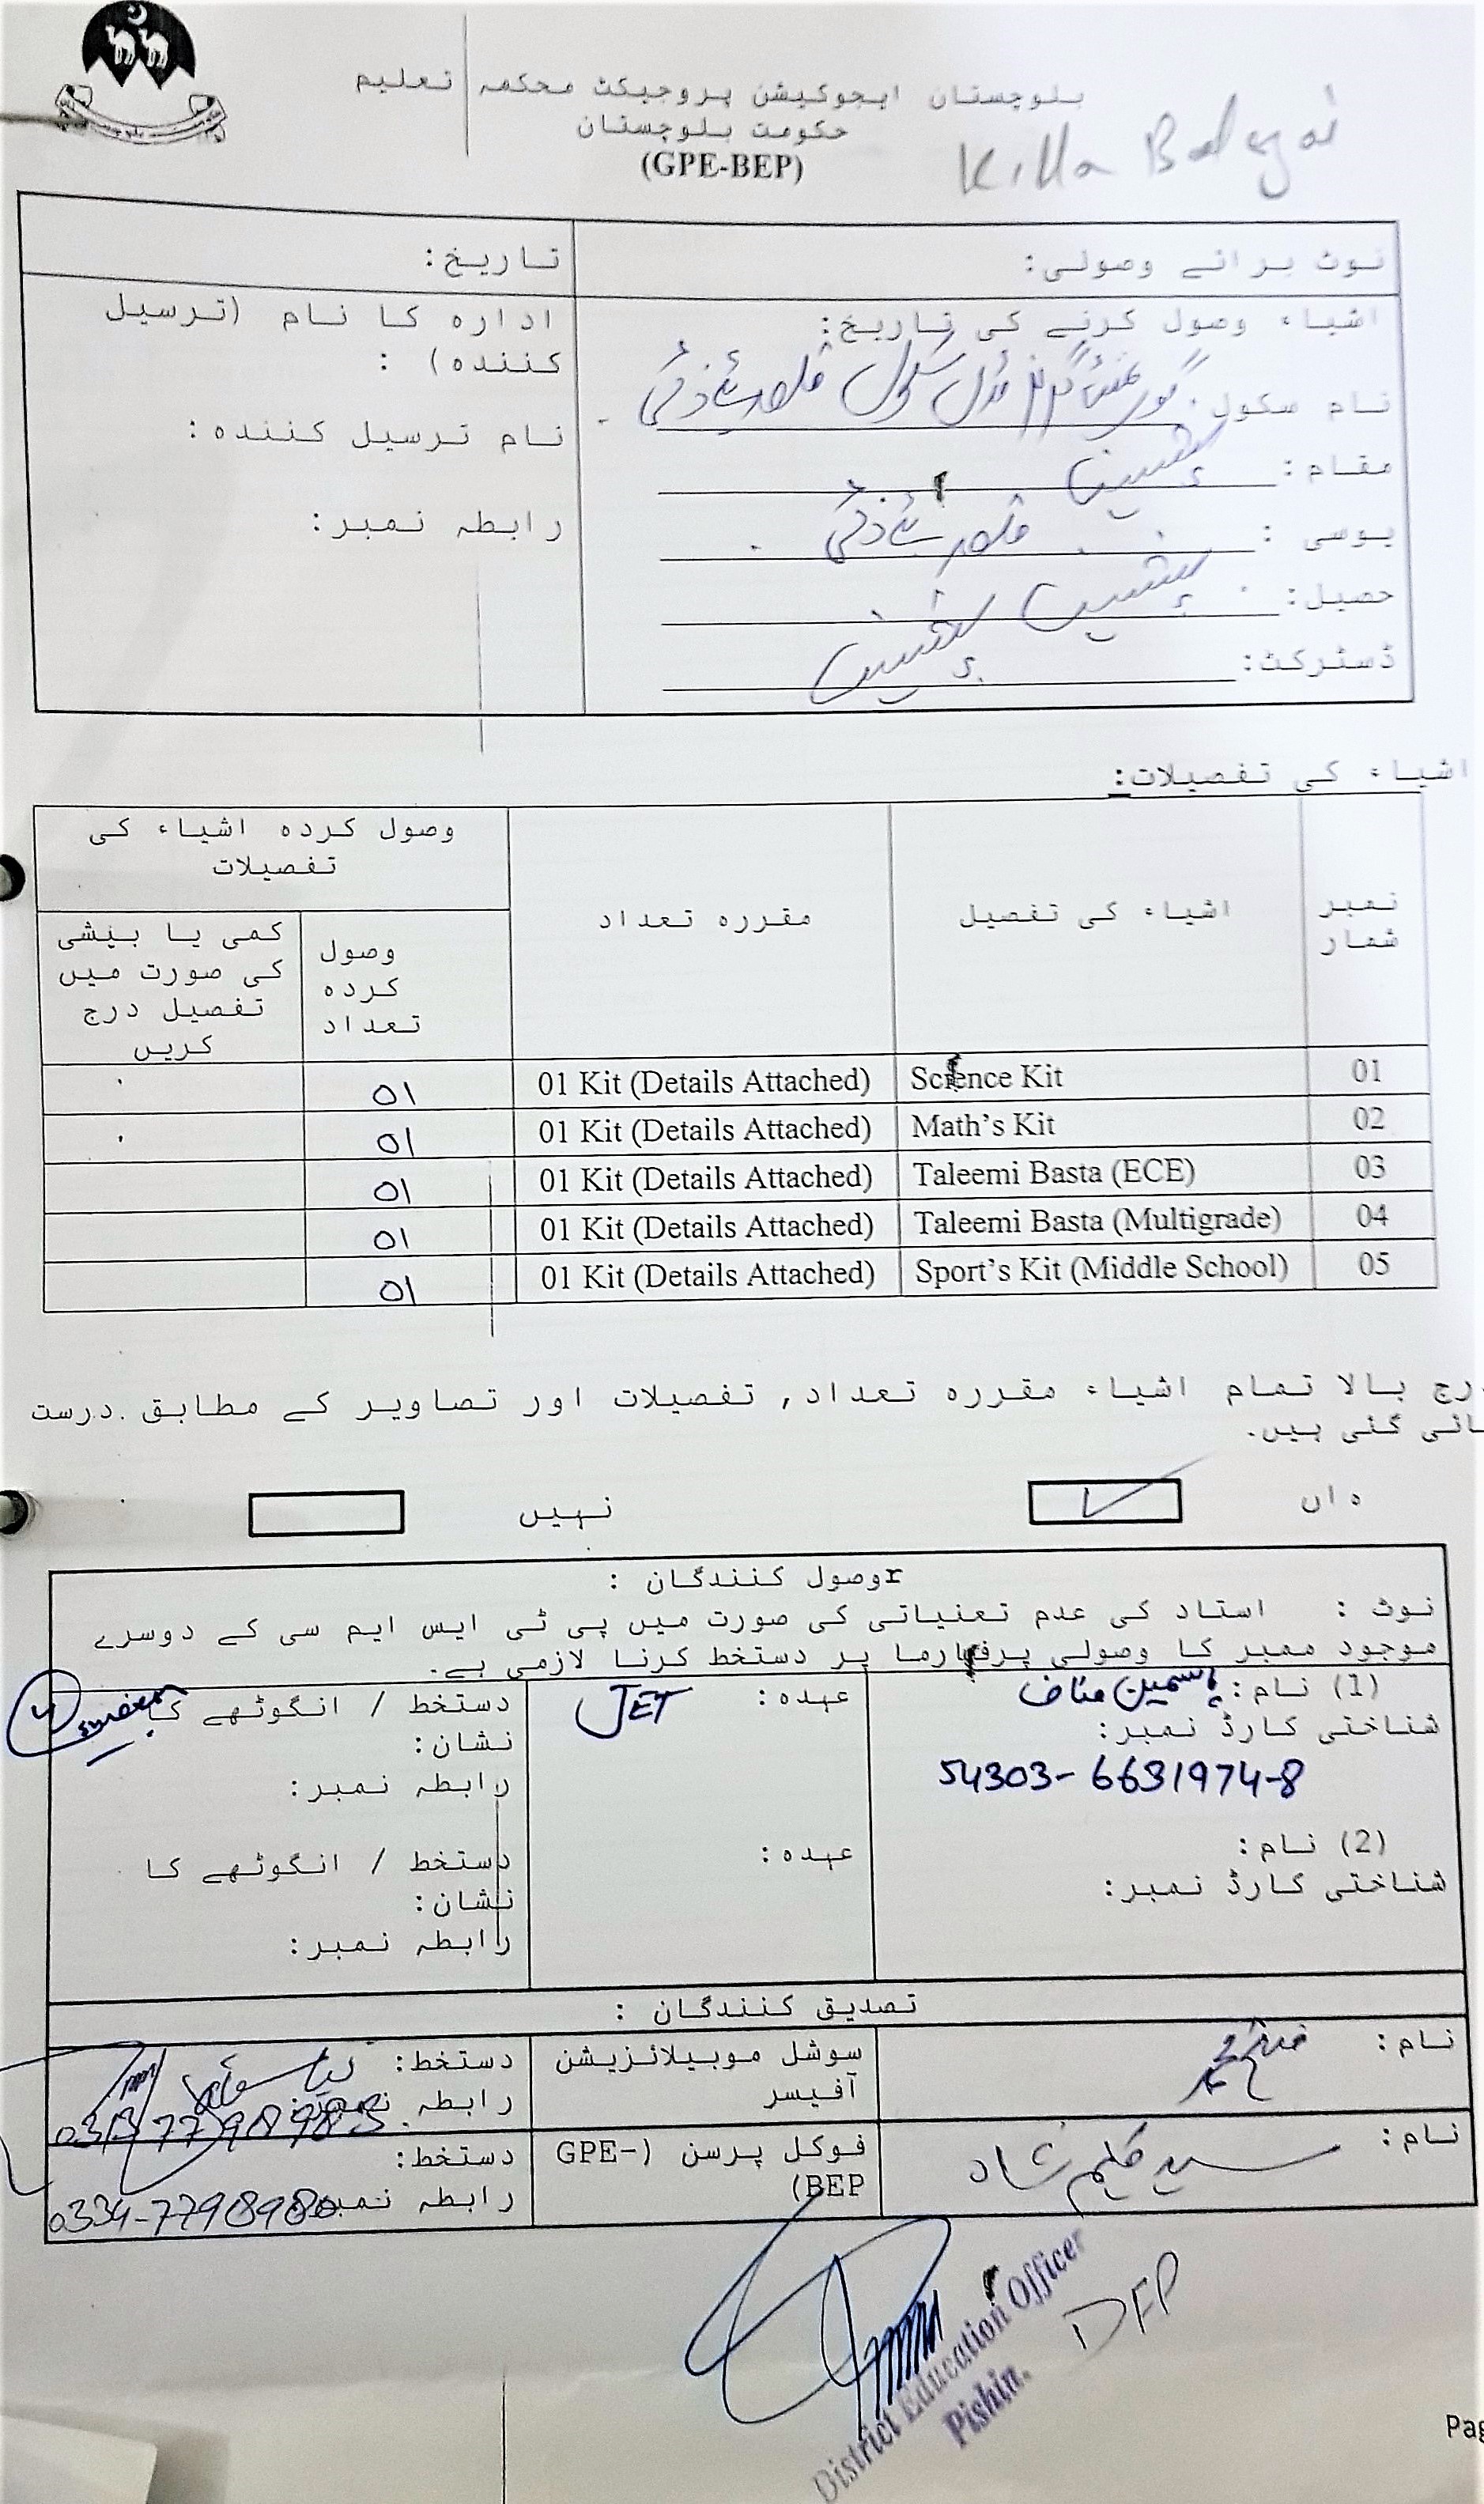 بلوچستان ایجوکیشن پروجیکٹ محکمہ تعلیم
حکومت بلوچستان
(GPE-BEP)
Killa
نوٹ برائے وصولی:
تاریخ:
اشیاء وصول کرنے کی تاریخ:
ادارہ کا نام (ترسیل کنندہ) :
نام سکول گورنمنٹ گرلز مڈل سکول
نام ترسیل کنندہ:
مقام: پشین
رابطہ نمبر:
یوسی :
حصیل: پشین
ڈسٹرکٹ: پشین
اشیاء کی تفصیلات:
نمبر شمار
اشیاء کی تفصیل
مقررہ تعداد
وصول کردہ اشیاء کی تفصیلات
وصول کردہ تعداد
کمی یا بیشی کی صورت میں تفصیل درج کریں
01 Science Kit 01 Kit (Details Attached) 01
02 Math's Kit 01 Kit (Details Attached) 01
03 Taleemi Basta (ECE) 01 Kit (Details Attached) 01
04 Taleemi Basta (Multigrade) 01 Kit (Details Attached) 01
05 Sport's Kit (Middle School) 01 Kit (Details Attached) 01
درج بالا تمام اشیاء مقررہ تعداد, تفصیلات اور تصاویر کے مطابق درست
پائی گئی ہیں.
ہاں
نہیں
rوصول کنندگان :
نوٹ : استاد کی عدم تعنیاتی کی صورت میں پی ٹی ایس ایم سی کے دوسرے
موجود ممبر کا وصولی پرفارما پر دستخط کرنا لازمی ہے.
(1) نام: یاسمین مناف
عہدہ: JET
دستخط / انگوٹھے کا نشان:
شناختی کارڈ نمبر:
54303-6631974-8
رابطہ نمبر:
(2) نام:
عہدہ:
دستخط / انگوٹھے کا نشان:
شناختی کارڈ نمبر:
رابطہ نمبر:
تصدیق کنندگان :
نام:
سوشل موبیلائزیشن آفیسر
دستخط:
رابطہ نمبر:
نام: سید کلیم شاہ
فوکل پرسن (GPE-BEP)
دستخط:
رابطہ نمبر: 0334-7798980
District Education Officer
Pishin.
DFP
Pag